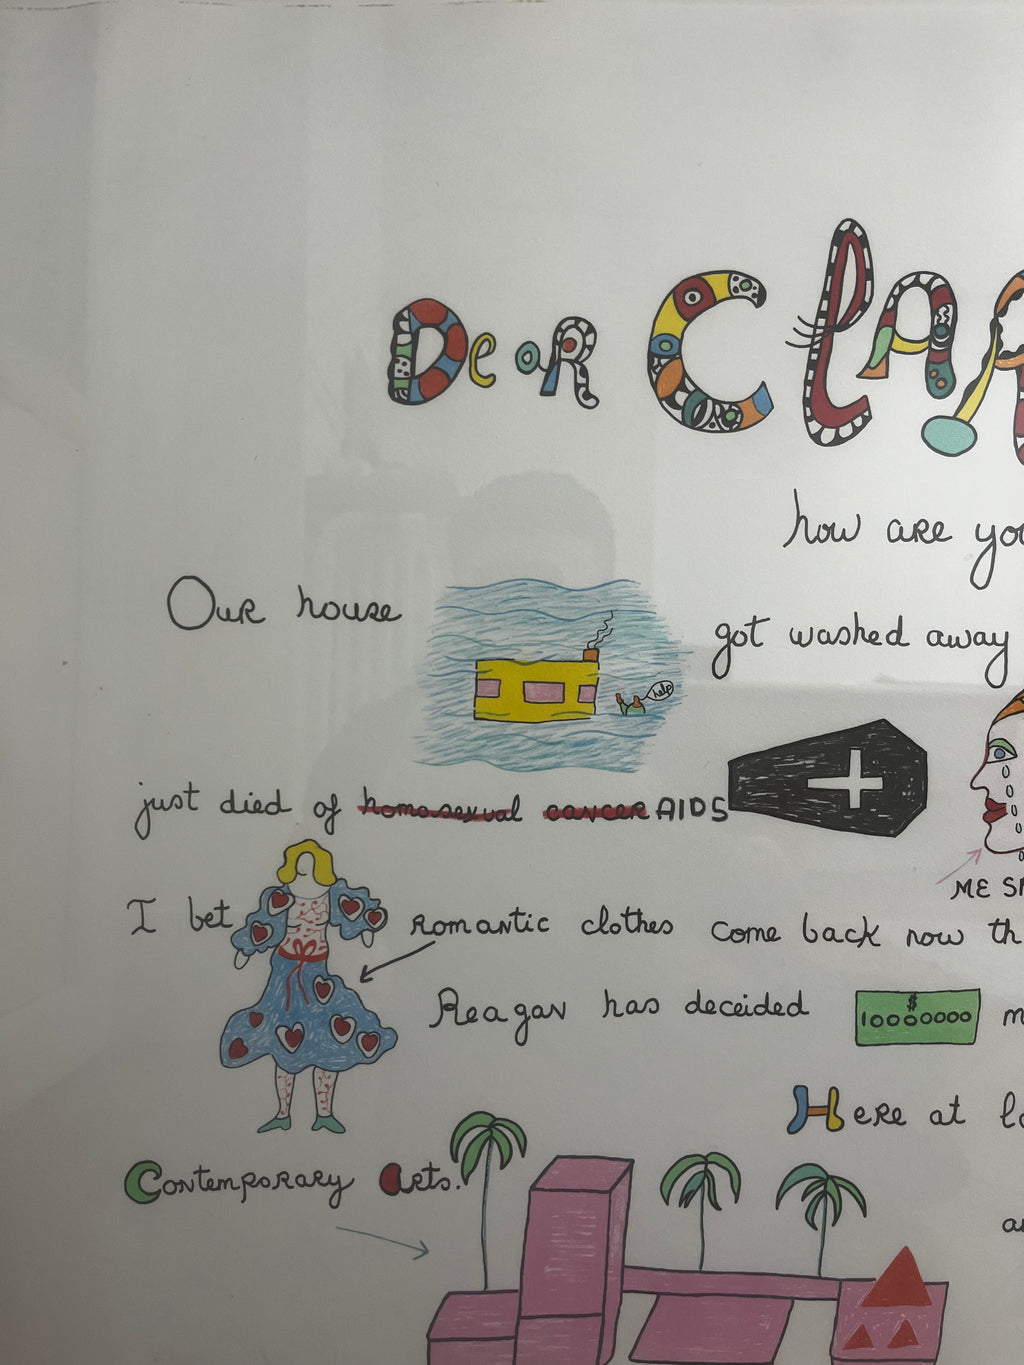 Dear Cla
how are
Our house
help
got washed away
just died of homosexual cancer AIDS
ME
I bet romantic clothes come back now
Reagan has deceided $ 10000000
Here at
Contemporary Arts.